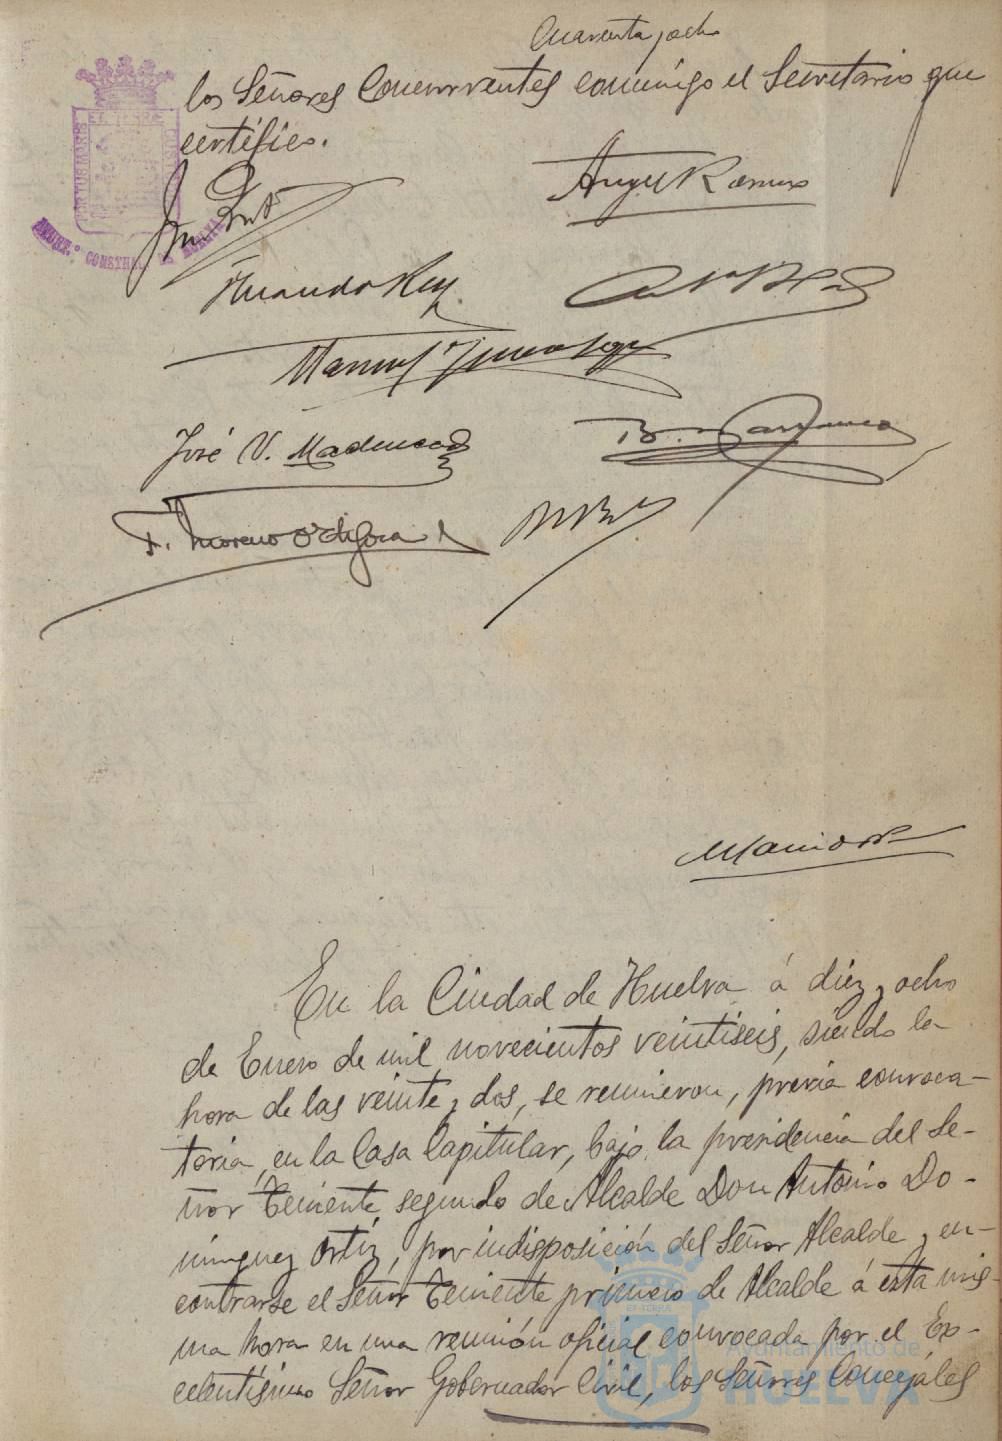 Cuarenta y ocho
los Señores Concurrentes conmigo el Secretario que
certifico.
Angel Ramos
Fernando Rey
Manuel
José V.
B.
F. Moreno Ortigosa
En la Ciudad de Huelva á diez y ocho
de Enero de mil novecientos veintiseis, siendo la
hora de las veinte y dos, se reunieron, previa convoca-
toria, en la Casa Capitular, bajo la presidencia del Se-
ñor Teniente segundo de Alcalde Don Antonio Do-
minguez Ortiz, por indisposición del Señor Alcalde y en-
contrarse el Señor Teniente primero de Alcalde á esta mis-
ma hora en una reunión oficial convocada por el Ex-
celentísimo Señor Gobernador Civil, los Señores Concejales
Ayuntamiento de
HUELVA